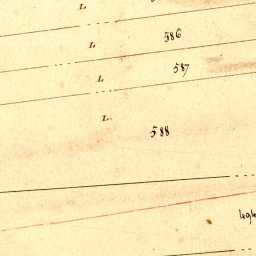 L
586
L
587
L
L
588